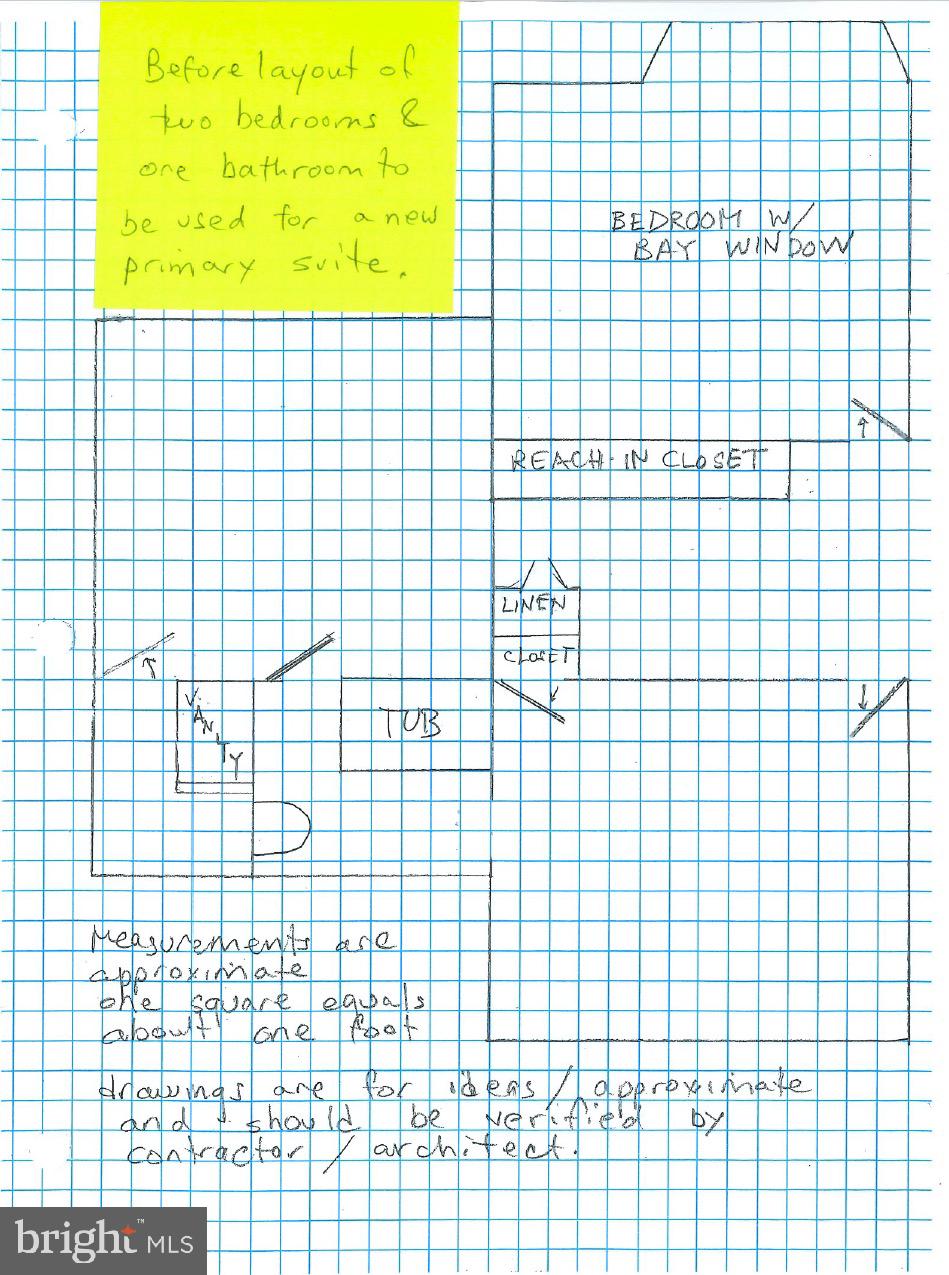 Before layout of
two bedrooms &
one bathroom to
be used for a new
primary suite.
BEDROOM W/
BAY WINDOW
REACH-IN CLOSET
LINEN
CLOSET
VANITY
TUB
Measurements are
approximate
one square equals
about one foot
drawings are for ideas / approximate
and should be verified by
contractor / architect.
bright™ MLS